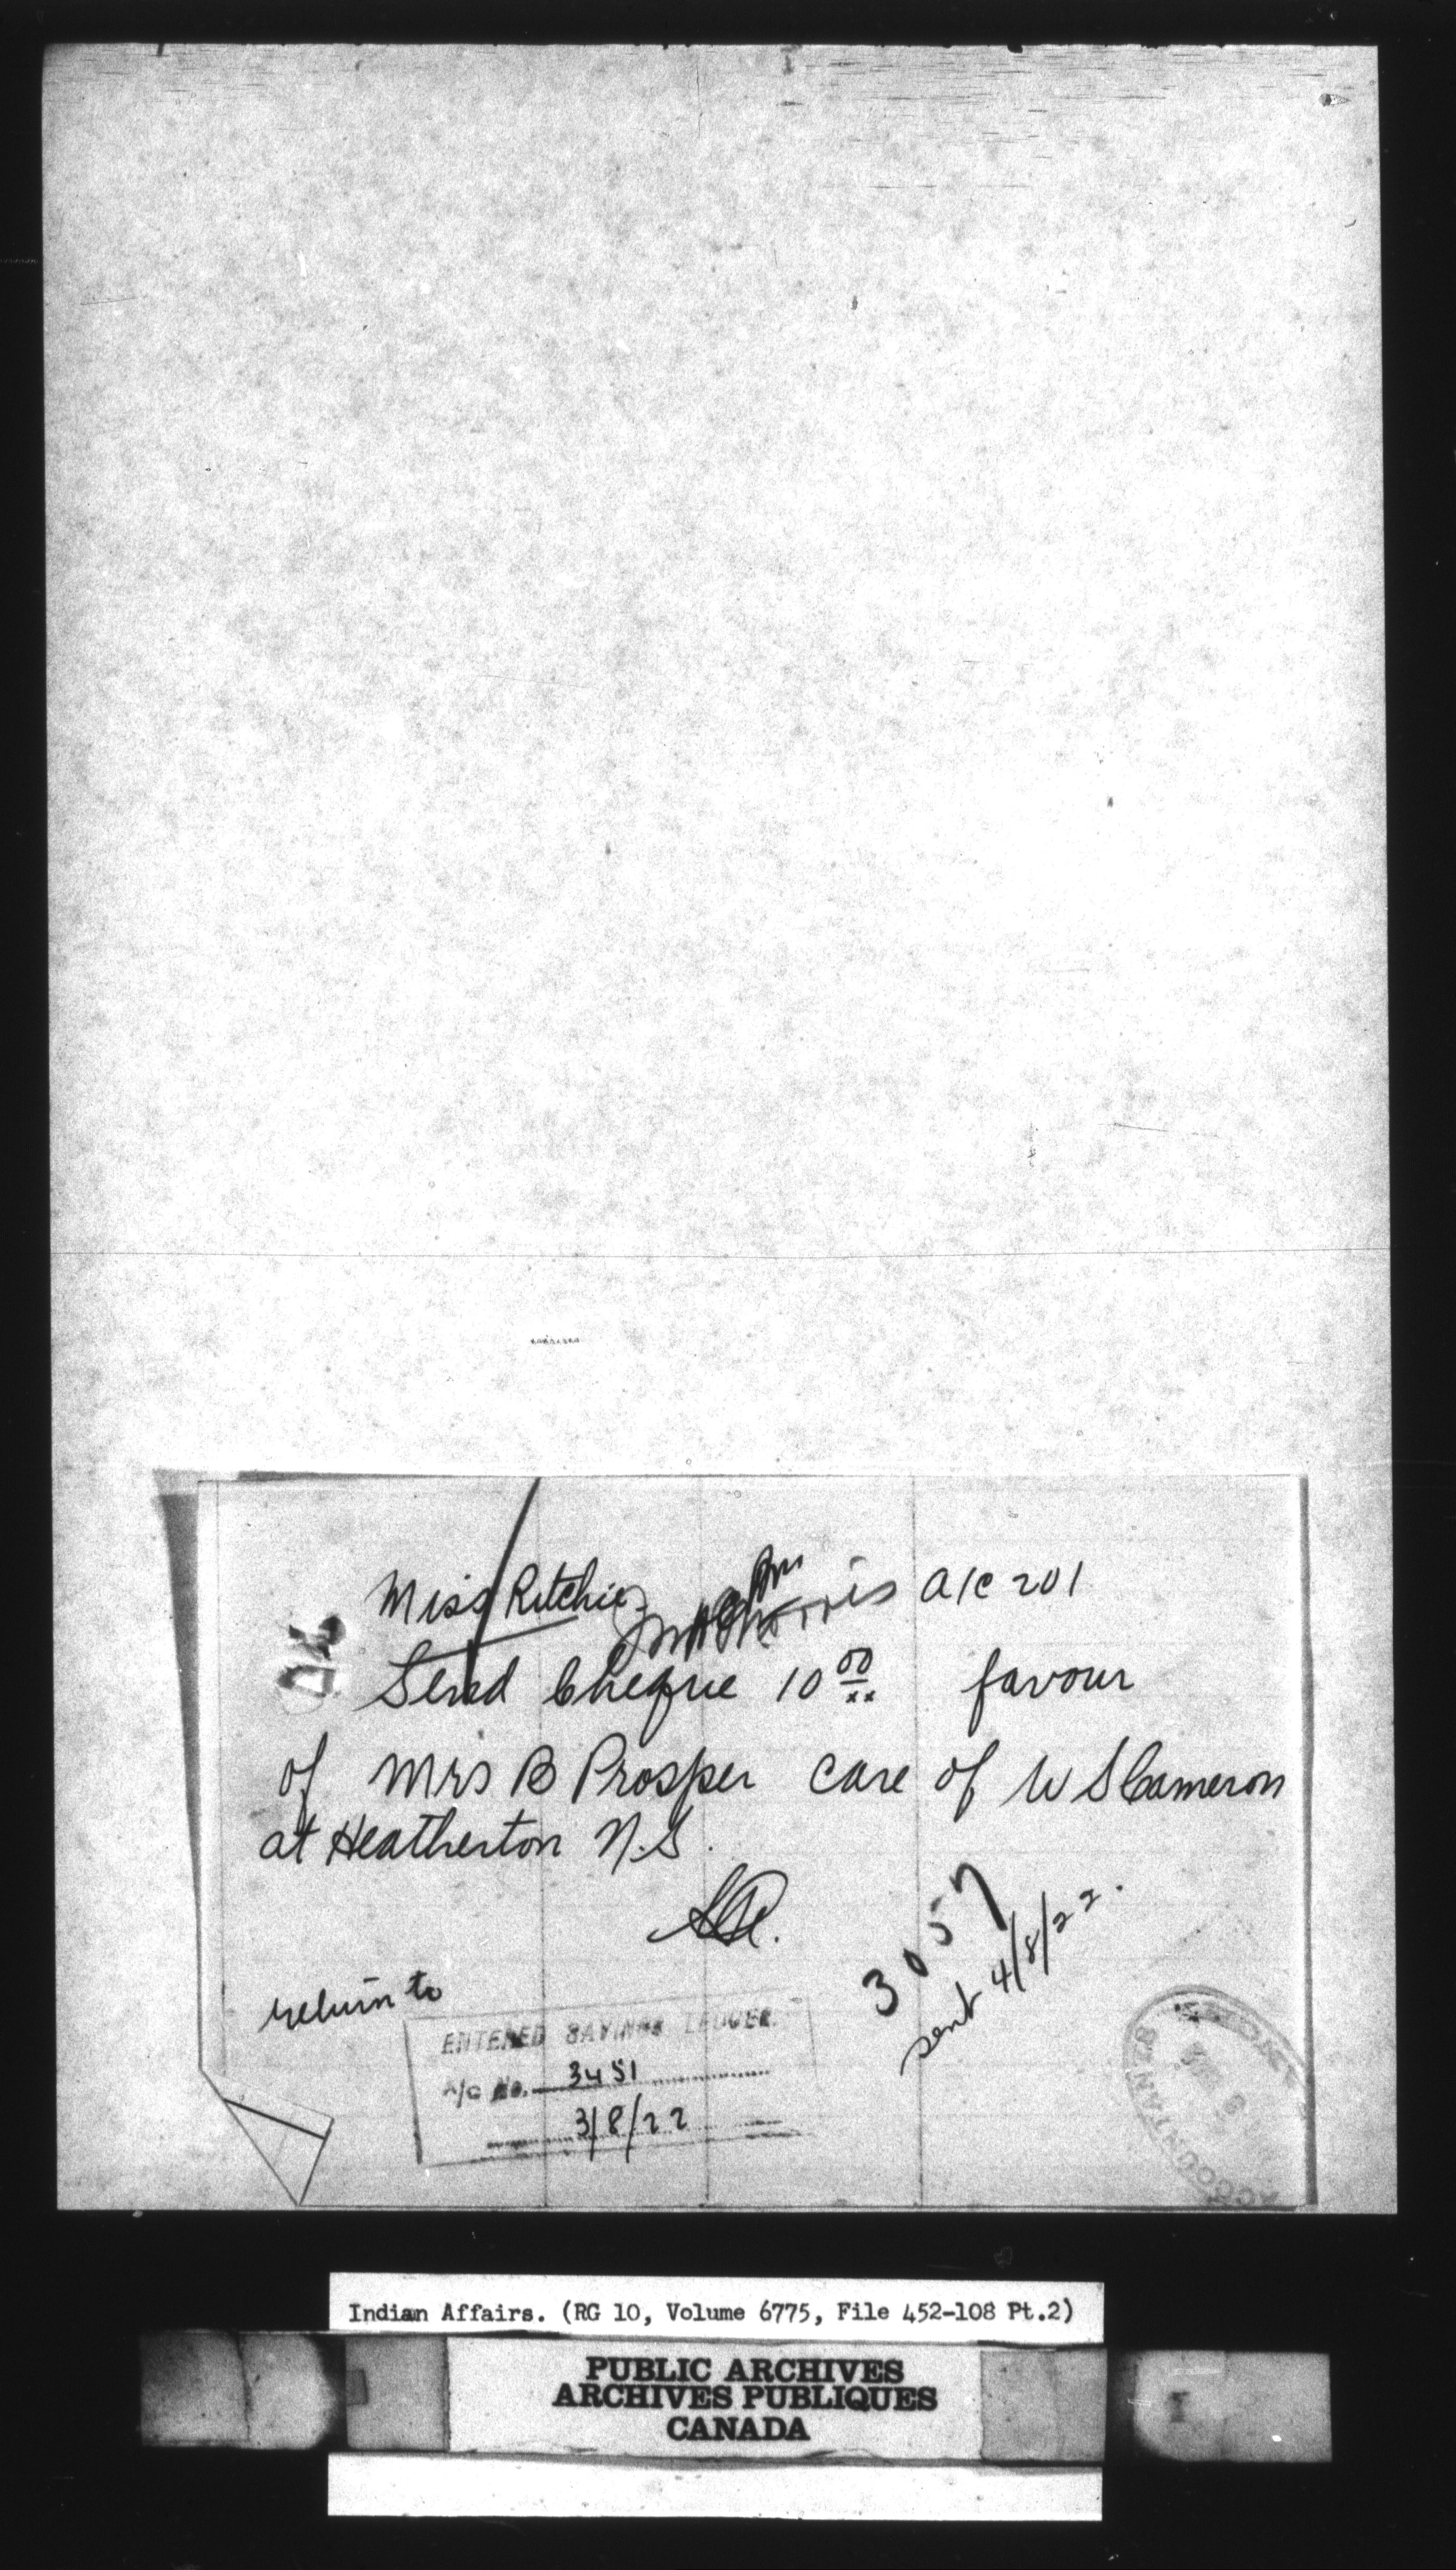 Miss Ritchie a/c 201
Send Cheque 10 00/xx favour
of Mrs B Prosper care of W S Cameron
at Heatherton N.S.
3057
sent 4/8/22.
return to
ENTERED SAVINGS LEDGER
A/c No. 3451
3/8/22
ACCOUNTANT'S
Indian Affairs. (RG 10, Volume 6775, File 452-108 Pt.2)
PUBLIC ARCHIVES
ARCHIVES PUBLIQUES
CANADA